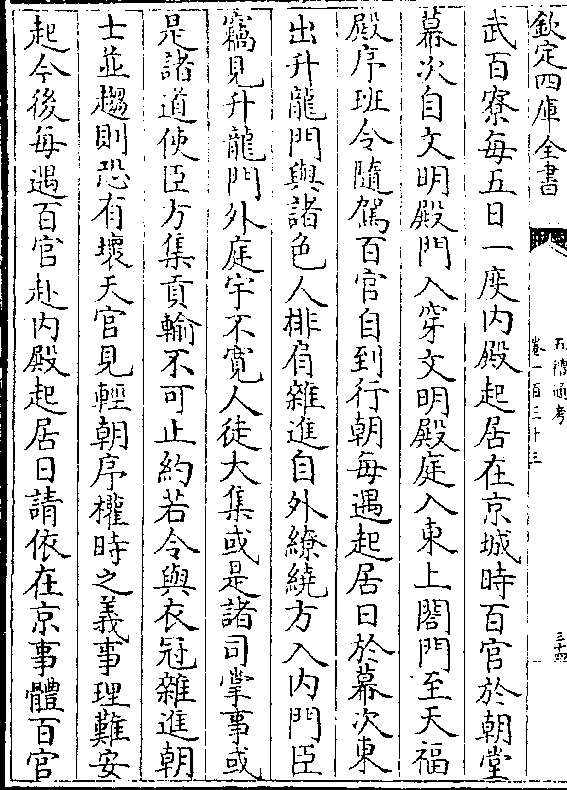 欽定四庫全書
五禮通考
卷一百三十三
三十四
武百寮每五日一度内殿起居在京城時百官於朝堂
幕次自文明殿門入穿文明殿庭入東上閤門至天福
殿序班今隨駕百官自到行朝每遇起居日於幕次東
出升龍門與諸色人排肩雜進自外繚繞方入内門臣
竊見升龍門外庭宇不寛人徒大集或是諸司掌事或
是諸道使臣方集貢輸不可止約若令與衣冠雜進朝
士並趨則恐有壞天官見輕朝序權時之義事理難安
起今後每遇百官赴内殿起居日請依在京事體百官